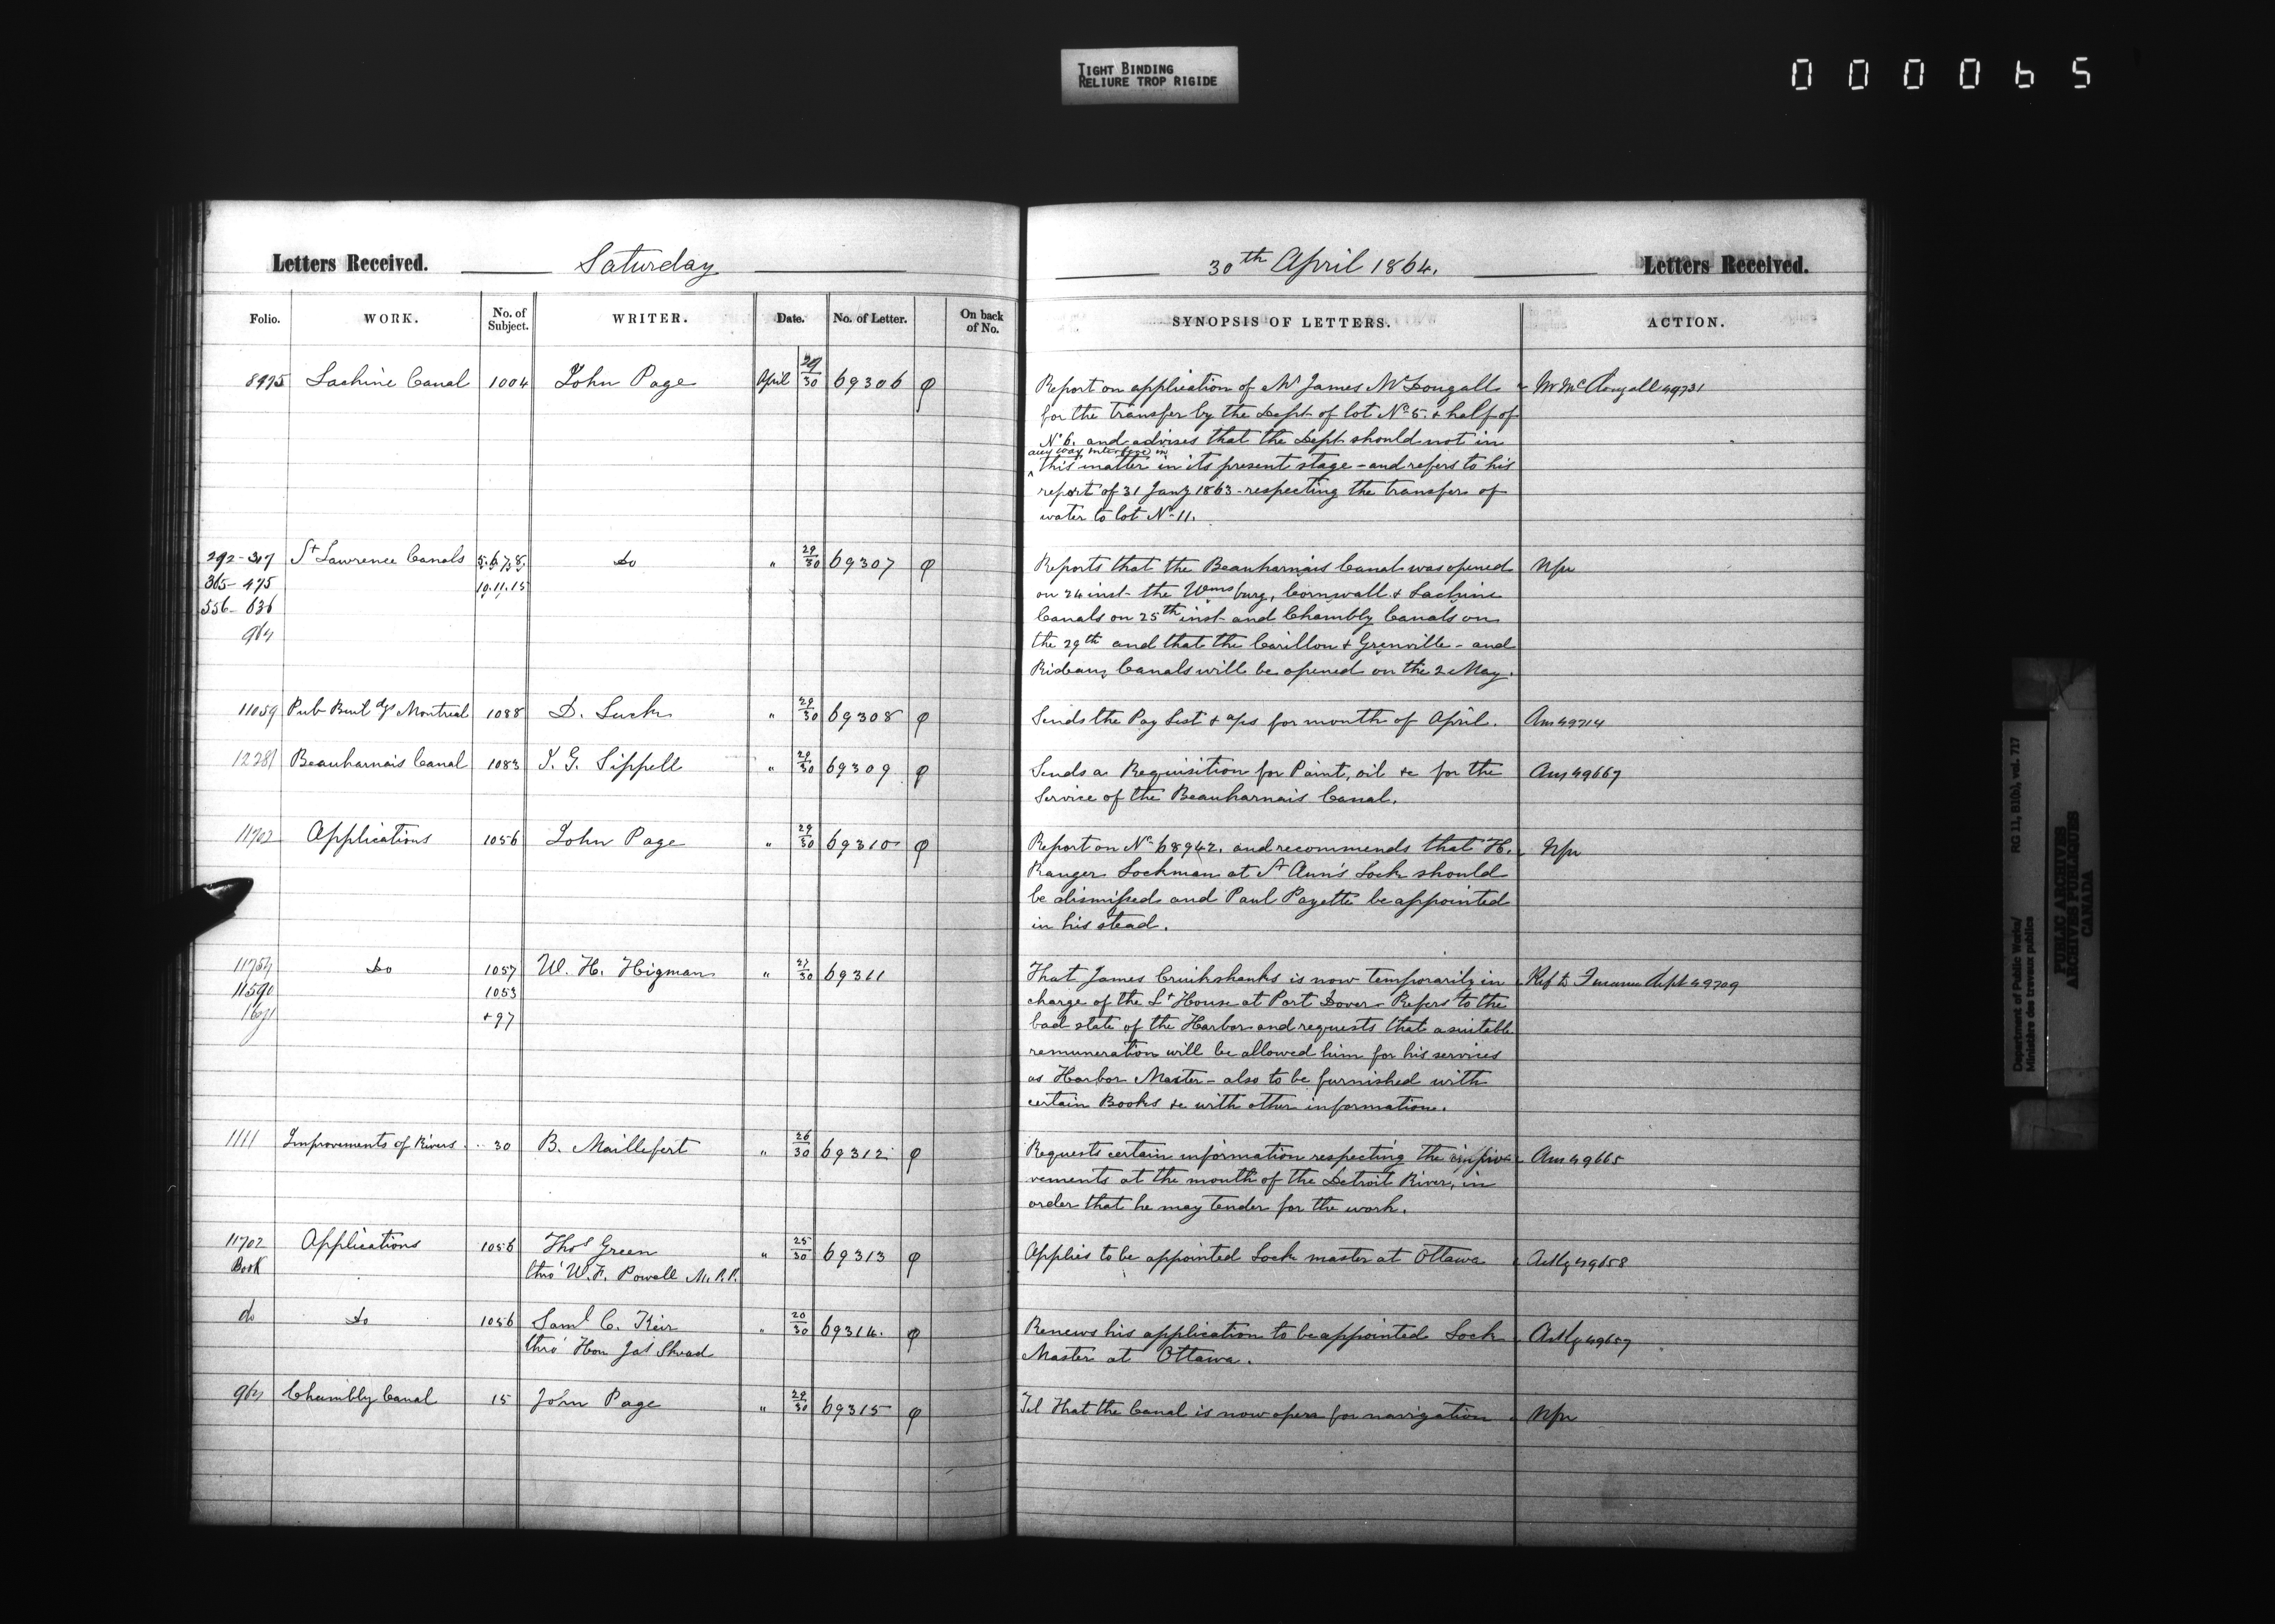 TIGHT BINDING
RELIURE TROP RIGIDE
000065
Letters Received. Saturday
Folio. WORK. No. of Subject. WRITER. Date. No. of Letter. On back of No.
8975 Lachine Canal 1004 John Page April 29/30 69306 φ
292-317 St Lawrence Canals 5.6.7.8. Do " 29/30 69307 φ
365-475 10.11.15
556-636
964
11059 Pub Buildgs Montreal 1088 D. Luck " 29/30 69308 φ
12281 Beauharnais Canal 1083 J. G. Sippell " 29/30 69309 φ
11702 Applications 1056 John Page " 29/30 69310 φ
11754 Do 1057 W. H. Higman " 27/30 69311
11590 1053
+97
1111 Improvements of Rivers 30 B. Maillefert " 26/30 69312 φ
11702 Applications 1056 Thos Green " 25/30 69313 φ
Book thro' W. F. Powell M.P.P.
do Do 1056 Saml C. Keir " 20/30 69314 φ
thro' Hon Jas Skead
964 Chambly Canal 15 John Page " 29/30 69315 φ
30th April 1864. Letters Received.
SYNOPSIS OF LETTERS. ACTION.
Report on application of Mr James McDougall Mr McDougall 49731
for the transfer by the Dept of lot No 5. + half of
No 6. and advises that the Dept should not in
any way interfere in
this matter in its present stage - and refers to his
report of 31 Jany 1863 - respecting the transfer of
water to lot No 11.
Reports that the Beauharnais Canal was opened Nfu
on 24 inst - the Wmsburg, Cornwall + Lachine
Canals on 25th inst - and Chambly Canals on
the 29th and that the Carillon + Grenville - and
Rideau Canals will be opened on the 2 May.
Sends the Pay List + a/cs for month of April. Ans 49714
Sends a Requisition for Paint, oil &c for the Ans 49667
Service of the Beauharnais Canal.
Report on No 68942. and recommends that H. Nfu
Ranger Lockman at St Ann's Lock should
be dismissed and Paul Payette be appointed
in his stead.
That James Cruikshanks is now temporarily in Ref to Finance Dept 49709
charge of the Lt House at Port Dover - Refers to the
bad state of the Harbor and requests that a suitable
remuneration will be allowed him for his services
as Harbor Master - also to be furnished with
certain Books &c with other information.
Requests certain information respecting the impro- Ans 49665
vements at the mouth of the Detroit River, in
order that he may tender for the work.
Applies to be appointed Lock master at Ottawa Ackg 49658
Renews his application to be appointed Lock Ackg 49657
Master at Ottawa.
Tel That the Canal is now open for navigation Nfu
Department of Public Works/
Ministère des travaux publics
RG 11, B1(b), vol. 717
PUBLIC ARCHIVES
ARCHIVES PUBLIQUES
CANADA